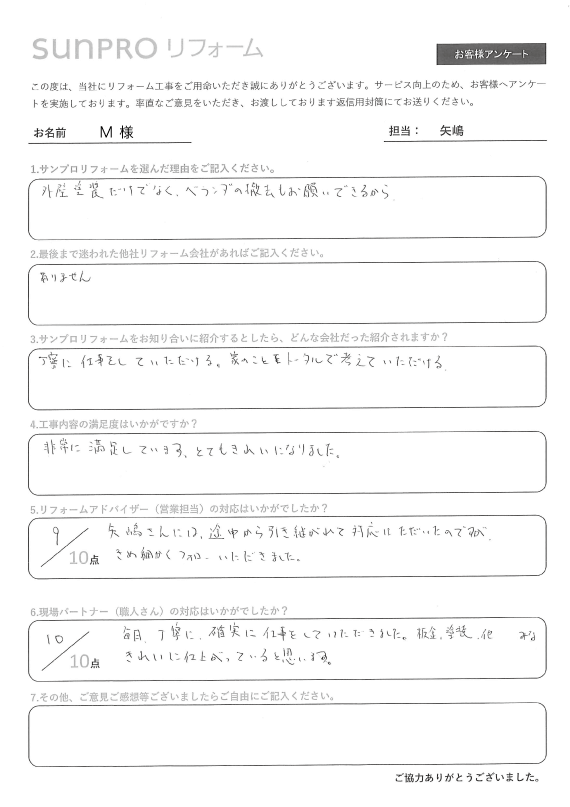 sunpro リフォーム
お客様アンケート
この度は、当社にリフォーム工事をご用命いただき誠にありがとうございます。サービス向上のため、お客様へアンケー
トを実施しております。率直なご意見をいただき、お渡ししております返信用封筒にてお送りください。
お名前 M 様 担当： 矢嶋
1.サンプロリフォームを選んだ理由をご記入ください。
外壁塗装だけでなく、ベランダの撤去もお願いできるから
2.最後まで迷われた他社リフォーム会社があればご記入ください。
ありません
3.サンプロリフォームをお知り合いに紹介するとしたら、どんな会社だった紹介されますか？
丁寧に仕事をしていただける。家のことをトータルで考えていただける。
4.工事内容の満足度はいかがですか？
非常に満足しています、とてもきれいになりました。
5.リフォームアドバイザー（営業担当）の対応はいかがでしたか？
9／10点
矢嶋さんには、途中から引き継がれて対応いただいたのですが、
きめ細かく いただきました。
6.現場パートナー（職人さん）の対応はいかがでしたか？
10／10点
毎日、丁寧に、確実に仕事をしていただきました。板金、塗装、他 みな
きれいに仕上がっていると思います。
7.その他、ご意見ご感想等ございましたらご自由にご記入ください。
ご協力ありがとうございました。